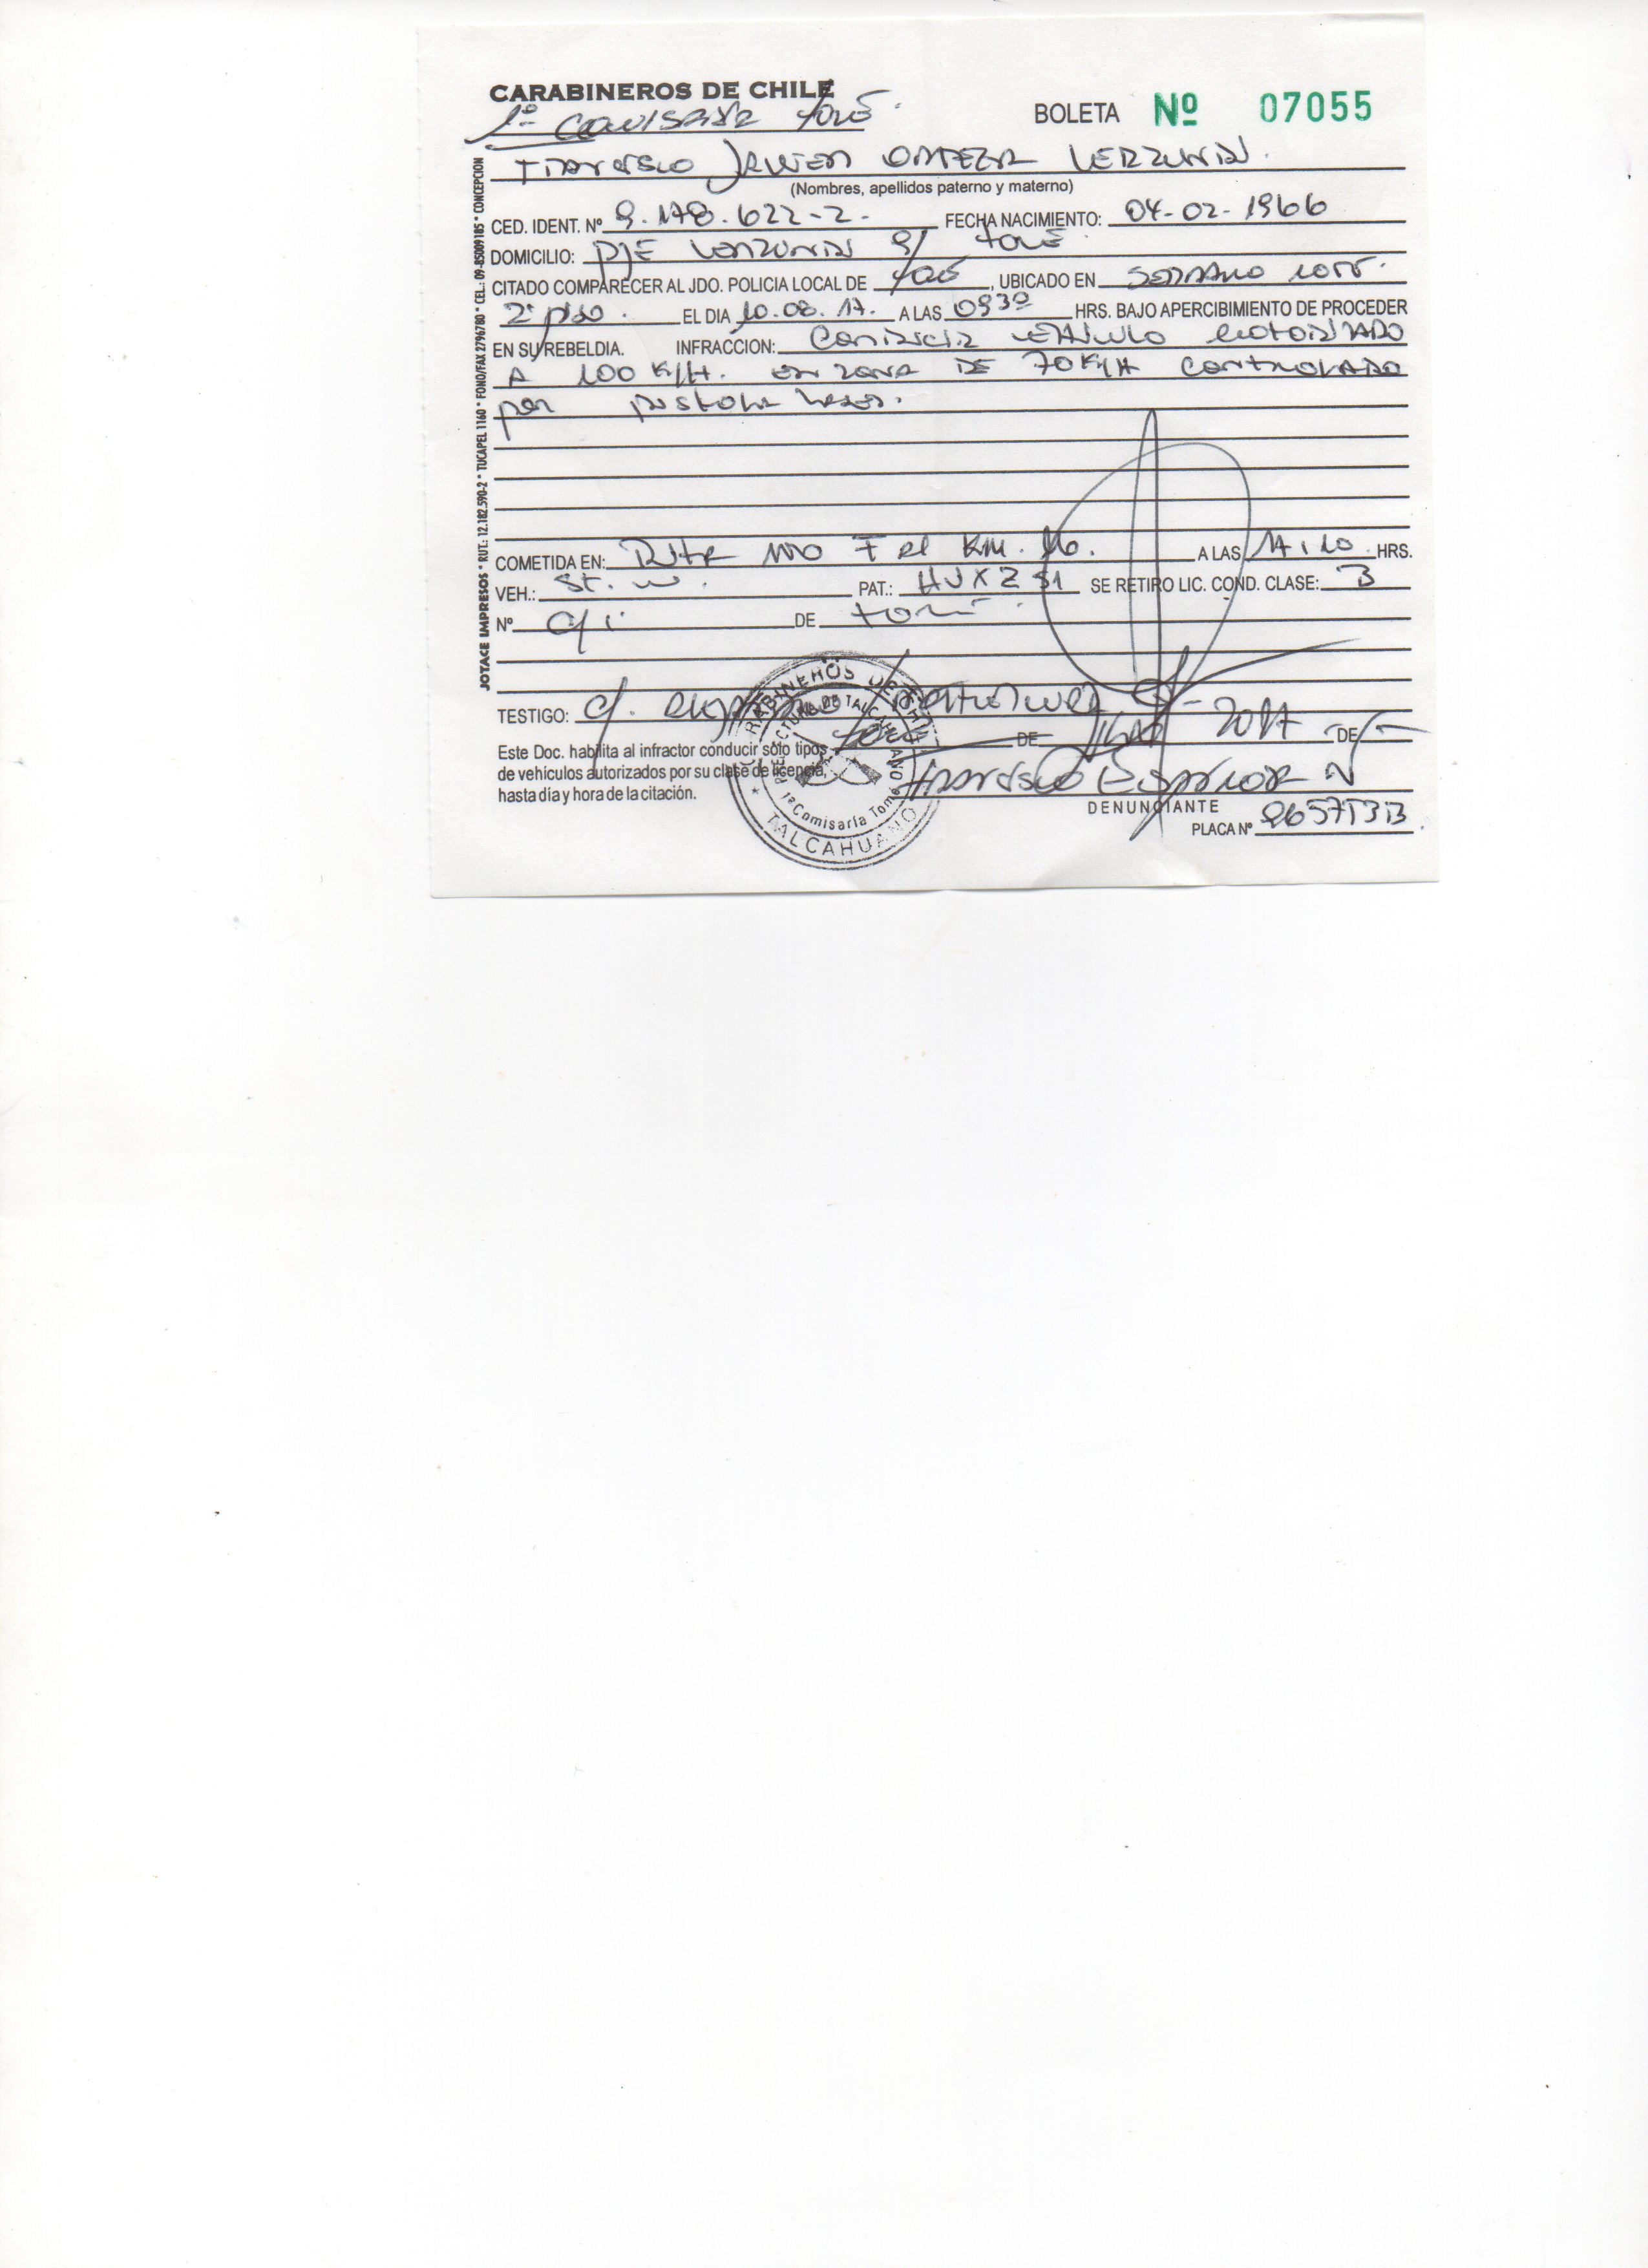 CARABINEROS DE CHILE
1º COMISARIA TOMÉ.
BOLETA Nº 07055
FRANCISCO JAVIER ORTEGA
(Nombres, apellidos paterno y materno)
CED. IDENT. Nº 9.178.622-2.- FECHA NACIMIENTO: 04-02-1966
DOMICILIO: PJE 9/ TOMÉ
CITADO COMPARECER AL JDO. POLICIA LOCAL DE TOMÉ, UBICADO EN SERRANO
2º PISO. EL DIA 10.08.17. A LAS 0930 HRS. BAJO APERCIBIMIENTO DE PROCEDER
EN SU REBELDIA. INFRACCION: CONDUCIR VEHICULO MOTORIZADO
A 100 K/H. EN ZONA DE 70 K/H CONTROLADO
POR PISTOLA LASER.
COMETIDA EN: RUTA 150 EL KM. 16. A LAS HRS.
VEH.: St. W. PAT.: HVXZ51 SE RETIRO LIC. COND. CLASE: B
Nº C/I DE TOMÉ
TESTIGO: C/.
TOMÉ DE 2017 DE
Este Doc. habilita al infractor conducir sólo tipos
de vehículos autorizados por su clase de licencia,
hasta día y hora de la citación.
FRANCISCO ESPINOZA
DENUNCIANTE
PLACA Nº
CARABINEROS DE CHILE
PREFECTURA DE TALCAHUANO
1ª Comisaría Tomé
TALCAHUANO
JOTACE IMPRESOS * RUT.: 12.182.590-2 * TUCAPEL 1160 * FONO/FAX 2796780 * CEL.: 09-85009185 * CONCEPCION